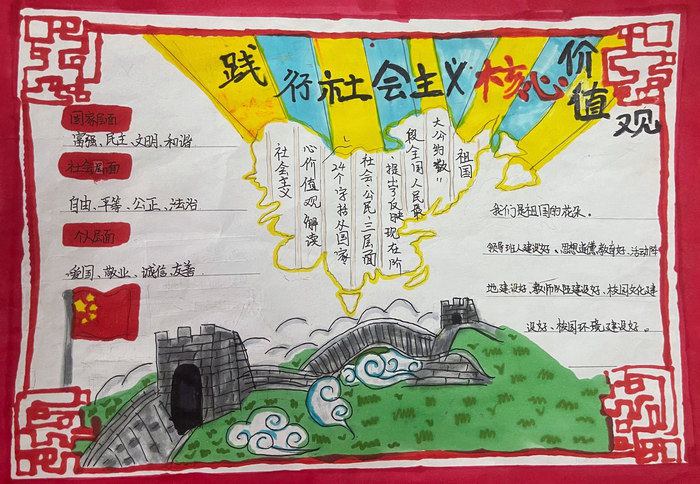 践行社会主义核心价值观
国家层面
富强、民主、文明、和谐
社会层面
自由、平等、公正、法治
个人层面
爱国、敬业、诚信、友善
社会主义
心价值观 解读
24个字括从国家
社会、公民、三层面
提出了反映现在阶
段全国人民最
大公约数"
祖国
我们是祖国的花朵。
领导班人建设好、思想道德教育好、活动阵
地建设好、教师队伍建设好、校园文化建
设好、校园环境建设好。